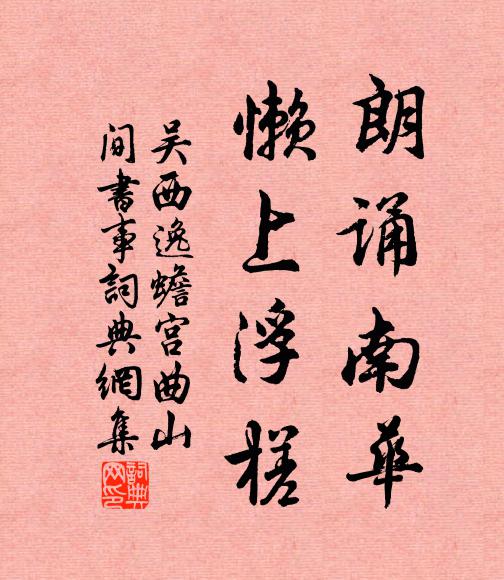 朗诵南华
懒上浮槎
吴西逸蟾宫曲山
间书事词典网集
词典网印